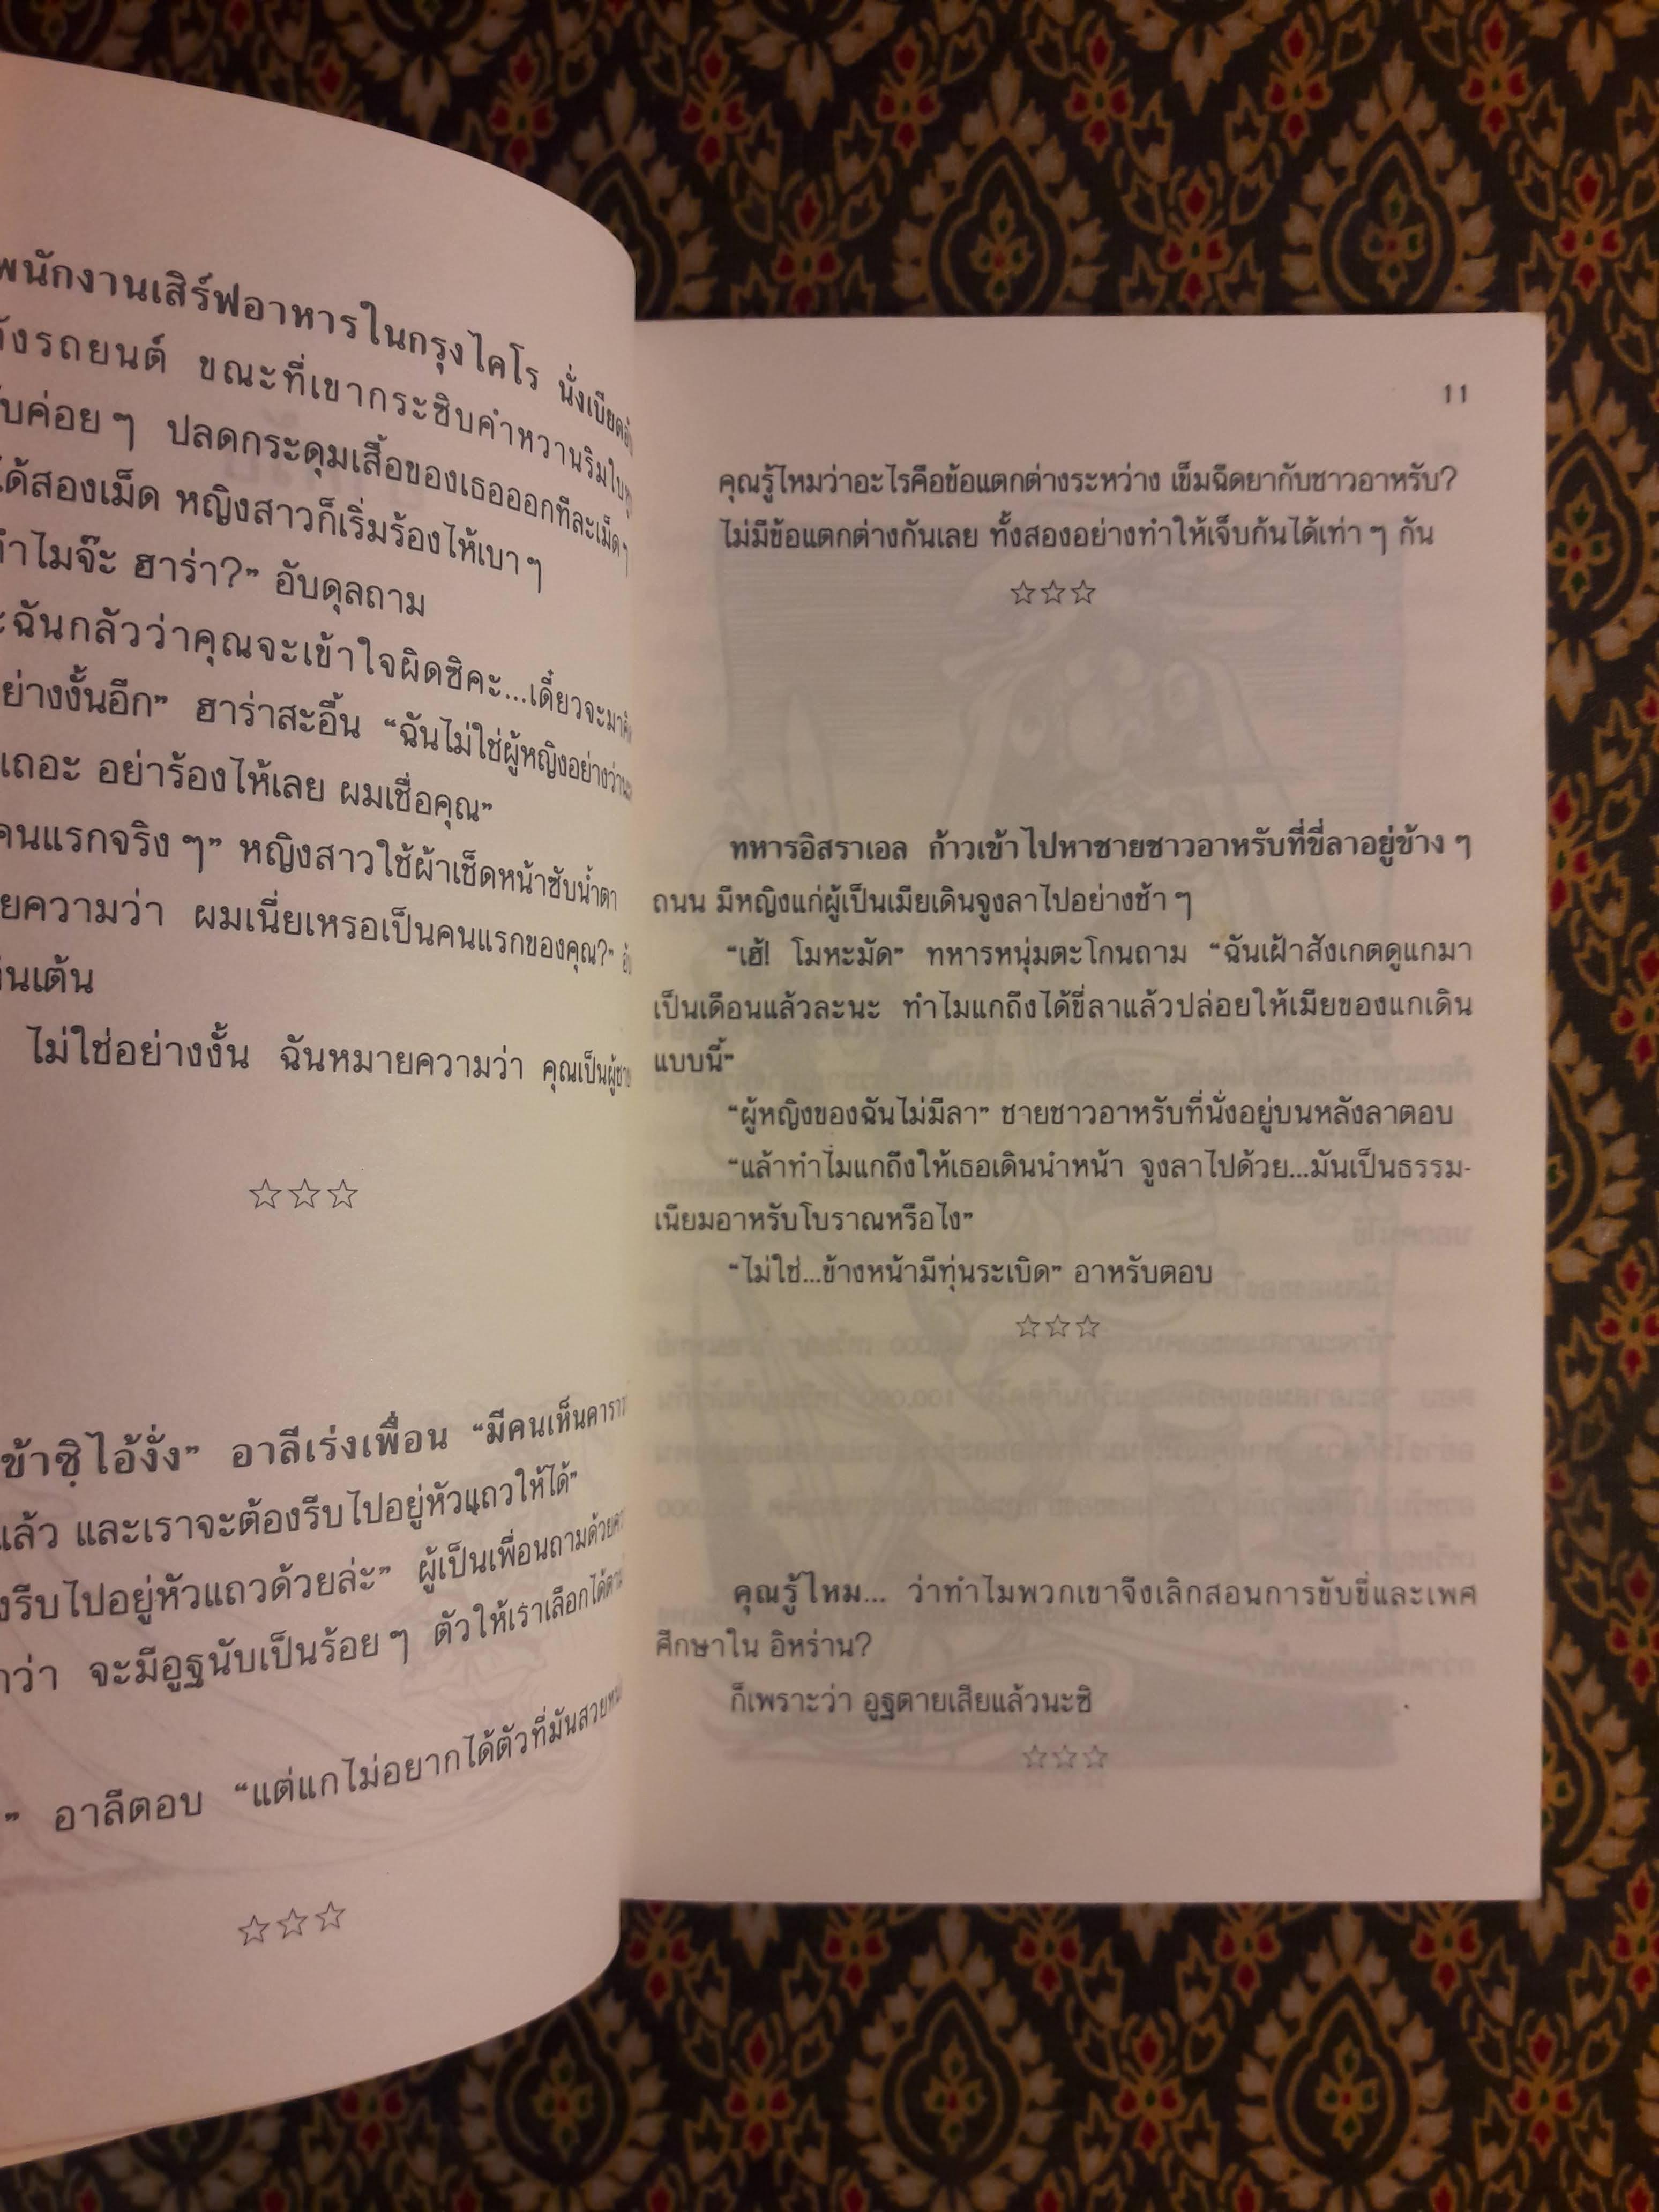 พนักงานเสิร์ฟอาหารในกรุงไคโร นั่งเบียด
รถยนต์ ขณะที่เขากระซิบคำหวานริม
ค่อยๆ ปลดกระดุมเสื้อของเธอออกทีละเม็ดๆ
ได้สองเม็ด หญิงสาวก็เริ่มร้องไห้เบาๆ
ทำไมจ๊ะ ฮาร่า?” อับดุลถาม
ฉันกลัวว่าคุณจะเข้าใจผิดซิคะ...เดี๋ยวจะมา
ย่างงั้นอีก” ฮาร่าสะอื้น “ฉันไม่ใช่ผู้หญิงอย่าง
เถอะ อย่าร้องไห้เลย ผมเชื่อคุณ”
คนแรกจริงๆ” หญิงสาวใช้ผ้าเช็ดหน้าซับน้ำตา
ยความว่า ผมเนี่ยเหรอเป็นคนแรกของคุณ?”
นเต้น
ไม่ใช่อย่างงั้น ฉันหมายความว่า คุณเป็นผู้ชาย
☆☆☆
ข้าซิไอ้งั่ง” อาลีเร่งเพื่อน “มีคนเห็น
แล้ว และเราจะต้องรีบไปอยู่หัวแถวให้ได้”
งรีบไปอยู่หัวแถวด้วยล่ะ” ผู้เป็นเพื่อนถามด้วย
ว่า จะมีอูฐนับเป็นร้อยๆ ตัวให้เราเลือกได้
” อาลีตอบ “แต่แกไม่อยากได้ตัวที่มันสวย
☆☆☆
11
คุณรู้ไหมว่าอะไรคือข้อแตกต่างระหว่าง เข็มฉีดยากับชาวอาหรับ?
ไม่มีข้อแตกต่างกันเลย ทั้งสองอย่างทำให้เจ็บก้นได้เท่าๆ กัน
☆☆☆
ทหารอิสราเอล ก้าวเข้าไปหาชายชาวอาหรับที่ขี่ลาอยู่ข้างๆ
ถนน มีหญิงแก่ผู้เป็นเมียเดินจูงลาไปอย่างช้าๆ
“เฮ้! โมหะมัด” ทหารหนุ่มตะโกนถาม “ฉันเฝ้าสังเกตดูแกมา
เป็นเดือนแล้วละนะ ทำไมแกถึงได้ขี่ลาแล้วปล่อยให้เมียของแกเดิน
แบบนี้”
“ผู้หญิงของฉันไม่มีลา” ชายชาวอาหรับที่นั่งอยู่บนหลังลาตอบ
“แล้าทำไมแกถึงให้เธอเดินนำหน้า จูงลาไปด้วย...มันเป็นธรรม-
เนียมอาหรับโบราณหรือไง”
“ไม่ใช่...ข้างหน้ามีทุ่นระเบิด” อาหรับตอบ
☆☆☆
คุณรู้ไหม... ว่าทำไมพวกเขาจึงเลิกสอนการขับขี่และเพศ
ศึกษาใน อิหร่าน?
ก็เพราะว่า อูฐตายเสียแล้วนะซิ
☆☆☆